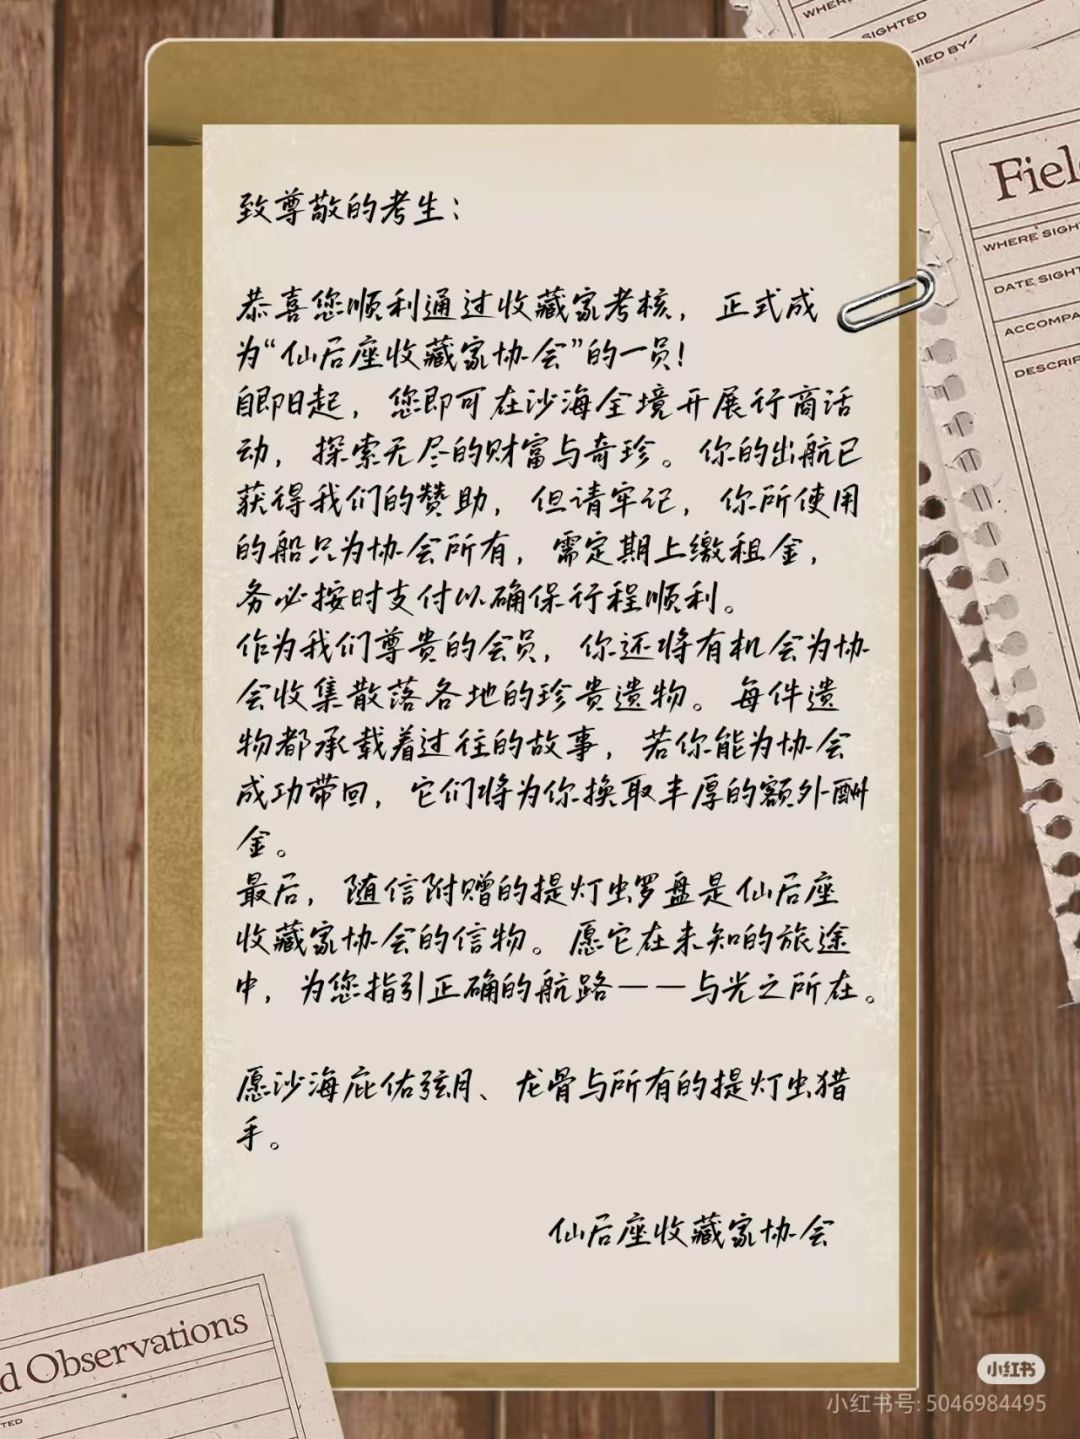 WHERE
SIGHTED
NIED BY
Fiel
WHERE SIGH
DATE SIGHT
ACCOMPA
DESCRIP
致尊敬的考生：
恭喜您顺利通过收藏家考核，正式成
为“仙后座收藏家协会”的一员！
自即日起，您即可在沙海全境开展行商活
动，探索无尽的财富与奇珍。你的出航已
获得我们的赞助，但请牢记，你所使用
的船只为协会所有，需定期上缴租金，
务必按时支付以确保行程顺利。
作为我们尊贵的会员，你还将有机会为协
会收集散落各地的珍贵遗物。每件遗
物都承载着过往的故事，若你能为协会
成功带回，它们将为你换取丰厚的额外酬
金。
最后，随信附赠的提灯虫罗盘是仙后座
收藏家协会的信物。愿它在未知的旅途
中，为您指引正确的航路——与光之所在。
愿沙海庇佑弦月、龙骨与所有的提灯虫猎
手。
仙后座收藏家协会
d Observations
TED
小红书
小红书号: 5046984495